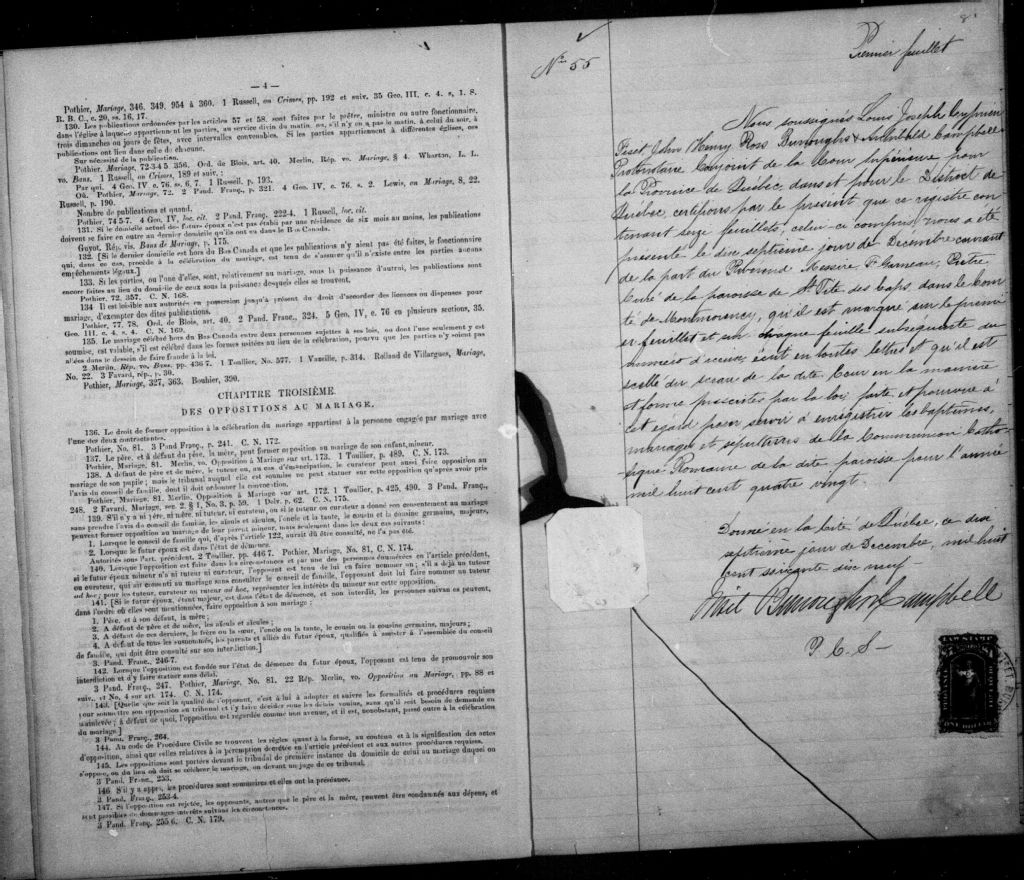 — 4 —
Pothier, Mariage, 346. 349. 954 à 360. 1 Russell, on Crimes, pp. 192 et suiv. 35 Geo. III, c. 4. s, 1. 8.
R. B. C., c. 20, ss. 16, 17.
130. Les publications ordonnées par les articles 57 et 58. sont faites par le prêtre, ministre ou autre fonctionnaire,
dans l'église à laquelle appartiennent les parties, au service divin du matin, ou, s'il n'y en a pas le matin, à celui du soir, à
trois dimanches ou jours de fêtes, avec intervalles convenables. Si les parties appartiennent à différentes églises, ces
publications ont lieu dans celle de chacune.
Sur nécessité de la publication.
Pothier, Mariage, 72-3-4 5 356. Ord. de Blois, art. 40. Merlin, Rép. vo. Mariage, § 4. Wharton, L. L.
vo. Bans. 1 Russell, on Crimes, 189 et suiv. :
Par qui. 4 Geo. IV c. 76, ss. 6, 7. 1 Russell, p. 193.
Où. Pothier, Mariage, 72. 2 Pand. Franç., p. 321. 4 Geo. IV, c. 76. s. 2. Lewis, on Mariage, 8, 22.
Russell, p. 190.
Nombre de publications et quand.
Pothier, 74 5-7. 4 Geo. IV, loc. cit. 2 Pand. Franç. 222-4. 1 Russell, loc. cit.
131. Si le domicile actuel des futurs époux n'est pas établi par une résidence de six mois au moins, les publications
doivent se faire en outre au dernier domicile qu'ils ont eu dans le Bas Canada.
Guyot, Rép. vis. Bans de Mariage, p. 175.
132. [Si le dernier domicile est hors du Bas Canada et que les publications n'y aient pas été faites, le fonctionnaire
qui, dans ce cas, procède à la célébration du mariage, est tenu de s'assurer qu'il n'existe entre les parties aucuns
empêchements légaux.]
133. Si les parties, ou l'une d'elles, sont, relativement au mariage, sous la puissance d'autrui, les publications sont
encore faites au lieu du domicile de ceux sous la puissance desquels elles se trouvent.
Pothier, 72. 357. C. N. 168.
134 Il est loisible aux autorités en possession jusqu'à présent du droit d'accorder des licences ou dispenses pour
mariage, d'exempter des dites publications.
Pothier, 77. 78. Ord. de Blois, art. 40. 2 Pand. Franc., 324. 5 Geo. IV, c. 76 en plusieurs sections, 35.
Geo. III. c. 4. s. 4. C. N. 169.
135. Le mariage célébré hors du Bas Canada entre deux personnes sujettes à ses lois, ou dont l'une seulement y est
soumise, est valable, s'il est célébré dans les formes usitées au lieu de la célébration, pourvu que les parties n'y soient pas
allées dans le dessein de faire fraude à la loi.
2 Merlin, Rép. vo. Bans, pp. 436 7. 1 Toullier, No. 577. 1 Vazeille, p. 314. Rolland de Villargues, Mariage,
No. 22. 3 Favard, rép., p. 30.
Pothier, Mariage, 327, 363. Bouhier, 390.
CHAPITRE TROISIÈME.
DES OPPOSITIONS AU MARIAGE.
136. Le droit de former opposition à la célébration du mariage appartient à la personne engagée par mariage avec
l'une des deux contractantes.
Pothier, No. 81. 3 Pand Franç., p. 241. C. N. 172.
137. Le père, et à défaut du père, la mère, peut former opposition au mariage de son enfant mineur.
Pothier, Mariage, 81. Merlin, vo. Opposition à Mariage sur art. 173. 1 Touillier, p. 489. C. N. 173.
138. A défaut de père et de mère, le tuteur ou, au cas d'émancipation, le curateur peut aussi faire opposition au
mariage de son pupile ; mais le tribunal auquel elle est soumise ne peut statuer sur cette opposition qu'après avoir pris
l'avis du conseil de famille, dont il doit ordonner la convocation.
Pothier, Mariage, 81. Merlin, Opposition à Mariage sur art. 172. 1 Toullier, p. 425, 490. 3 Pand. Franç.,
248. 2 Favard, Mariage, sec. 2. § 1, No. 3, p. 59. 1 Delv. p. 62. C. N., 175.
139. S'il n'y a ni père, ni mère, ni tuteur, ni curateur, ou si le tuteur ou curateur a donné son consentement au mariage
sans prendre l'avis du conseil de famille, les aïeuls et aïeules, l'oncle et la tante, le cousin et la cousine germains, majeurs,
peuvent former opposition au mariage de leur parent mineur, mais seulement dans les deux cas suivants :
1. Lorsque le conseil de famille qui, d'après l'article 122, aurait dû être consulté, ne l'a pas été.
2. Lorsque le futur époux est dans l'état de démence.
Autorités sous l'art. précédent, 2 Toullier, pp. 446 7. Pothier, Mariage, No. 81, C. N. 174.
140. Lorsque l'opposition est faite dans les circonstances et par une des personnes énoncées en l'article précédent,
si le futur époux mineur n'a ni tuteur ni curateur, l'opposant est tenu de lui en faire nommer un ; s'il a déjà un tuteur
ou curateur, qui ait consenti au mariage sans consulter le conseil de famille, l'opposant doit lui faire nommer un tuteur
ad hoc ; pour les tuteur, curateur ou tuteur ad hoc, représenter les intérêts du mineur sur cette opposition.
141. [Si le futur époux, étant majeur, est dans l'état de démence, et non interdit, les personnes suivantes peuvent,
dans l'ordre où elles sont mentionnées, faire opposition à son mariage :
1. Père, et à son défaut, la mère ;
2. A défaut de père et de mère, les aïeuls et aïeules ;
3. A défaut de ces derniers, le frère ou la sœur, l'oncle ou la tante, le cousin ou la cousine germains, majeurs ;
4. A défaut de tous les susnommés, les parents et alliés du futur époux, qualifiés à assister à l'assemblée du conseil
de famille, qui doit être consulté sur son interdiction.]
3. Pand. Franç., 246-7.
142. Lorsque l'opposition est fondée sur l'état de démence du futur époux, l'opposant est tenu de promouvoir son
interdiction et d'y faire statuer sans délai.
3 Pand. Franç., 247. Pothier, Mariage, No. 81. 22 Rép. Merlin, vo. Opposition au Mariage, pp. 88 et
suiv., et No. 4 sur art. 174. C. N. 174.
143. [Quelle que soit la qualité de l'opposant, c'est à lui à adopter et suivre les formalités et procédures requises
pour soumettre son opposition au tribunal et l'y faire décider sous les délais voulus, sans qu'il soit besoin de demande en
mainlevée ; à défaut de quoi, l'opposition est regardée comme non avenue, et il est, nonobstant, passé outre à la célébration
du mariage.]
3 Pand. Franç., 264.
144. Au code de Procédure Civile se trouvent les règles quant à la forme, au contenu et à la signification des actes
d'opposition, ainsi que celles relatives à la péremption décrétée en l'article précédent et aux autres procédures requises.
145. Les oppositions sont portées devant le tribunal de première instance du domicile de celui au mariage duquel on
s'oppose, ou du lieu où doit se célébrer le mariage, ou devant un juge de ce tribunal.
3 Pand. Franc., 253.
146. S'il y a appel, les procédures sont sommaires et elles ont la préséance.
3. Pand. Franç., 253-4.
147. Si l'opposition est rejetée, les opposants, autres que le père et la mère, peuvent être condamnés aux dépens, et
sont passibles de dommages intérêts suivant les circonstances.
3 Pand. Franç. 255 6. C. N. 179.
No 55
Premier feuillet
Nous soussignés Louis Joseph Cyprien
Fiset John Henry Ross Burroughs & Archibald Campbell
Protonotaire Conjoint de la Cour Supérieure pour
la Province de Québec, dans et pour le District de
Québec, certifions par le présent que ce registre con
tenant seize feuillets, celui-ci compris, nous a été
présenté le dix septième jour de Décembre courant
de la part du Révérend Messire F. Garneau, Prêtre
Curé de la paroisse de St Tite des Caps, dans le Com
té de Montmorency, qu'il est marqué sur le premi
er feuillet et sur chaque feuille subséquente du
numéro d'icelui, écrit en toutes lettres et qu'il est
scellé du sceau de la dite Cour en la manière
et forme prescrites par la loi, faite et pourvue à
cet égard pour servir à enregistrer les baptêmes,
mariages et sépultures de la Communion Catho
lique Romaine de la dite paroisse pour l'année
mil huit cent quatre vingt.
Donné en la Cité de Québec, ce dix
septième jour de Décembre, mil huit
cent soixante dix neuf
Fiset Burroughs & Campbell
P. C. S—
LAW STAMP
ONE DOLLAR